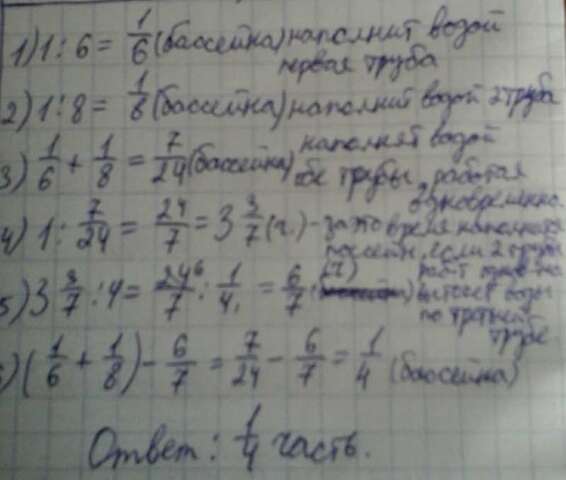 1) 1 : 6 = 1/6 (бассейна) наполнит водой
первая труба
2) 1 : 8 = 1/8 (бассейна) наполнит водой 2 труба
3) 1/6 + 1/8 = 7/24 (бассейна) наполнят водой
обе трубы, работая
одновременно.
4) 1 : 7/24 = 24/7 = 3 3/7 (ч.) - за это время наполнится
бассейн, если 2 трубы
5) 3 3/7 : 4 = 24 6/7 : 1/4 1 = 6/7 (ч)
вытекет воды
по третьей
трубе.
) (1/6 + 1/8) - 6/7 = 7/24 - 6/7 = 1/4 (бассейна)
Ответ: 1/4 часть.